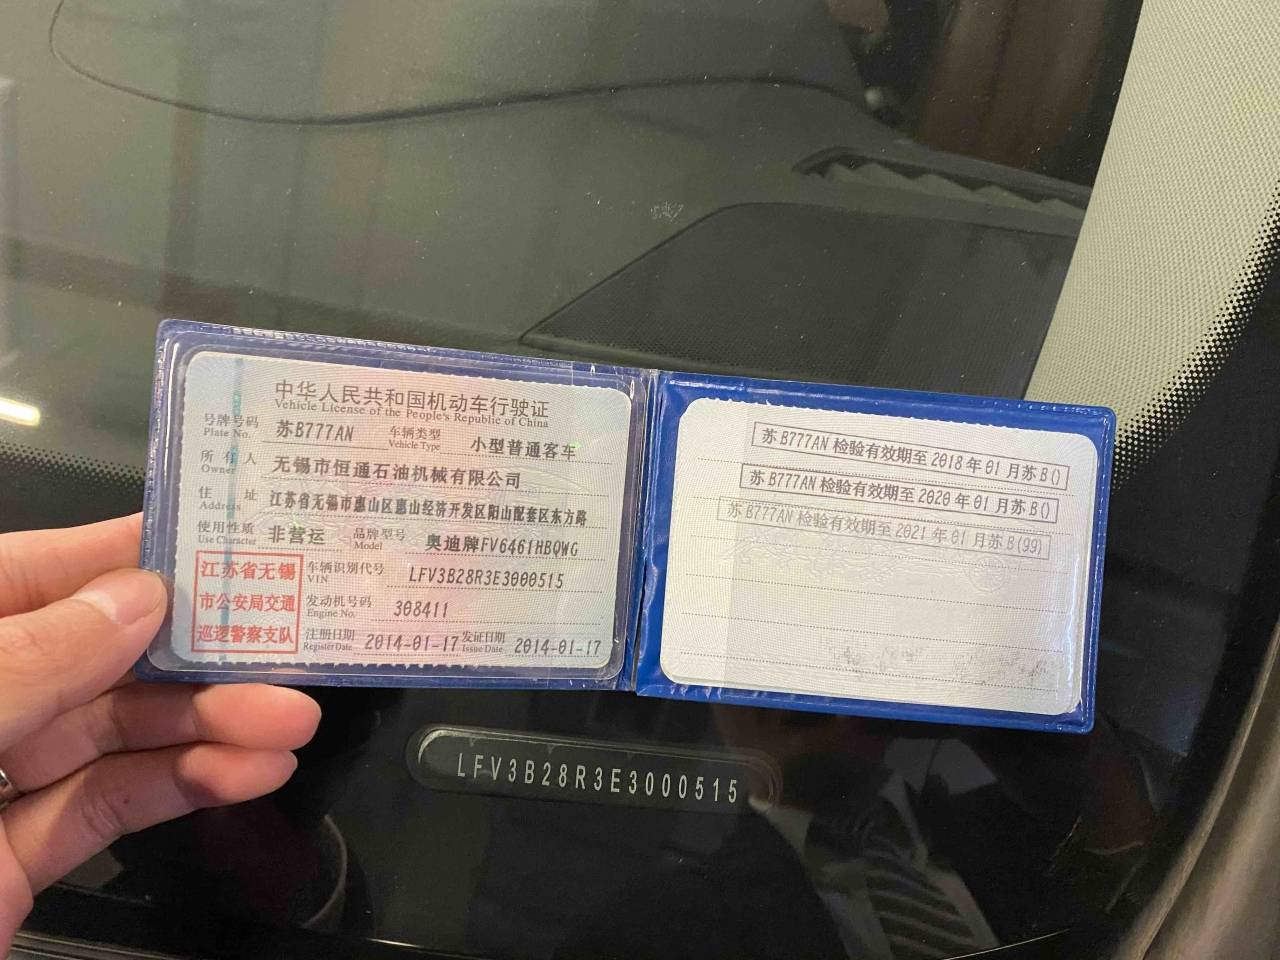 中华人民共和国机动车行驶证
Vehicle License of the People's Republic of China
号牌号码 苏B777AN 车辆类型 小型普通客车
Plate No. Vehicle Type
所有人 无锡市恒通石油机械有限公司
Owner
住址 江苏省无锡市惠山区惠山经济开发区阳山配套区东方路
Address
使用性质 非营运 品牌型号 奥迪牌FV6461HBQWG
Use Character Model
江苏省无锡
市公安局交通
巡逻警察支队
车辆识别代号 LFV3B28R3E3000515
VIN
发动机号码 308411
Engine No.
注册日期 2014-01-17 发证日期 2014-01-17
Register Date Issue Date
苏B777AN检验有效期至2018年01月苏B()
苏B777AN检验有效期至2020年01月苏B()
苏B777AN检验有效期至2021年01月苏B(99)
LFV3B28R3E3000515